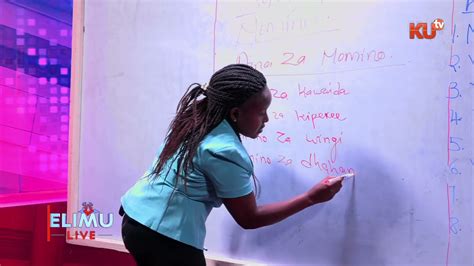 KU tv
Nomino
Aina za Nomino.
za kawaida
za kipekee
za wingi
za dhahan
1.
2.
3.
4.
5.
6.
7.
8.
ELIMU
LIVE